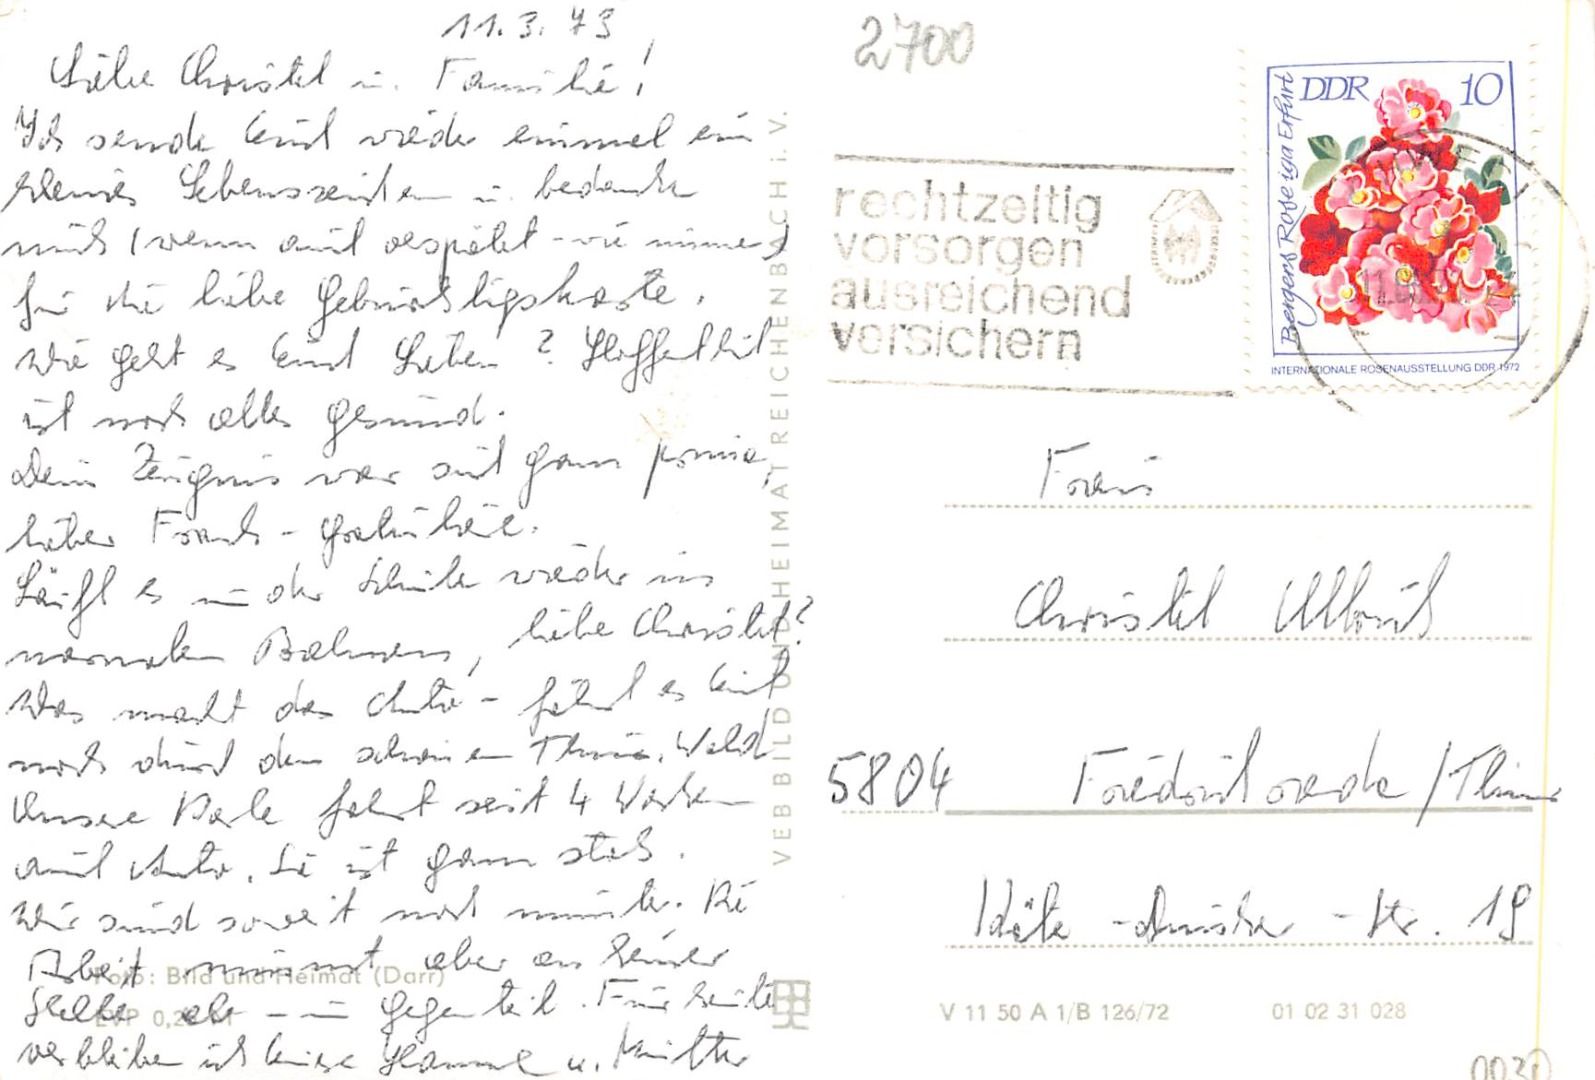 11.3.73
Liebe Christel u. Familie!
Ich sende Euch wieder einmal ein
kleines Lebenszeichen u. bedanke
mich (wenn auch verspätet - wie immer)
für die liebe Geburtstagskarte.
Wie geht es Euch Lieben? Hoffentlich
ist noch alles gesund.
Dein Zeugnis war doch ganz prima,
lieber Frank - gratuliere.
Läuft es in der Schule wieder in
normalen Bahnen, liebe Christel?
Was macht das Auto - fährt es Euch
noch durch den schönen Thür. Wald
Unsere Perle fährt seit 4 Wochen
auch Auto. Sie ist ganz stolz.
Wir sind soweit noch munter. Die
Arbeit nimmt aber an keiner
Stelle ab - im Gegenteil. Für heute
verbleiben ich Eure u. Mutter
Foto: Bild und Heimat (Darr)
EVP 0,2
VEB BILD UND HEIMAT REICHENBACH i. V.
2700
rechtzeitig
vorsorgen
ausreichend
versichern
DDR 10
Bergers Rose iga Erfurt
INTERNATIONALE ROSENAUSSTELLUNG DDR 1972
Frau
Christel Ulbrich
5804 Friedrichroda / Thür
Käte-Duncker-Str. 19
V 11 50 A 1/B 126/72 01 02 31 028
0030